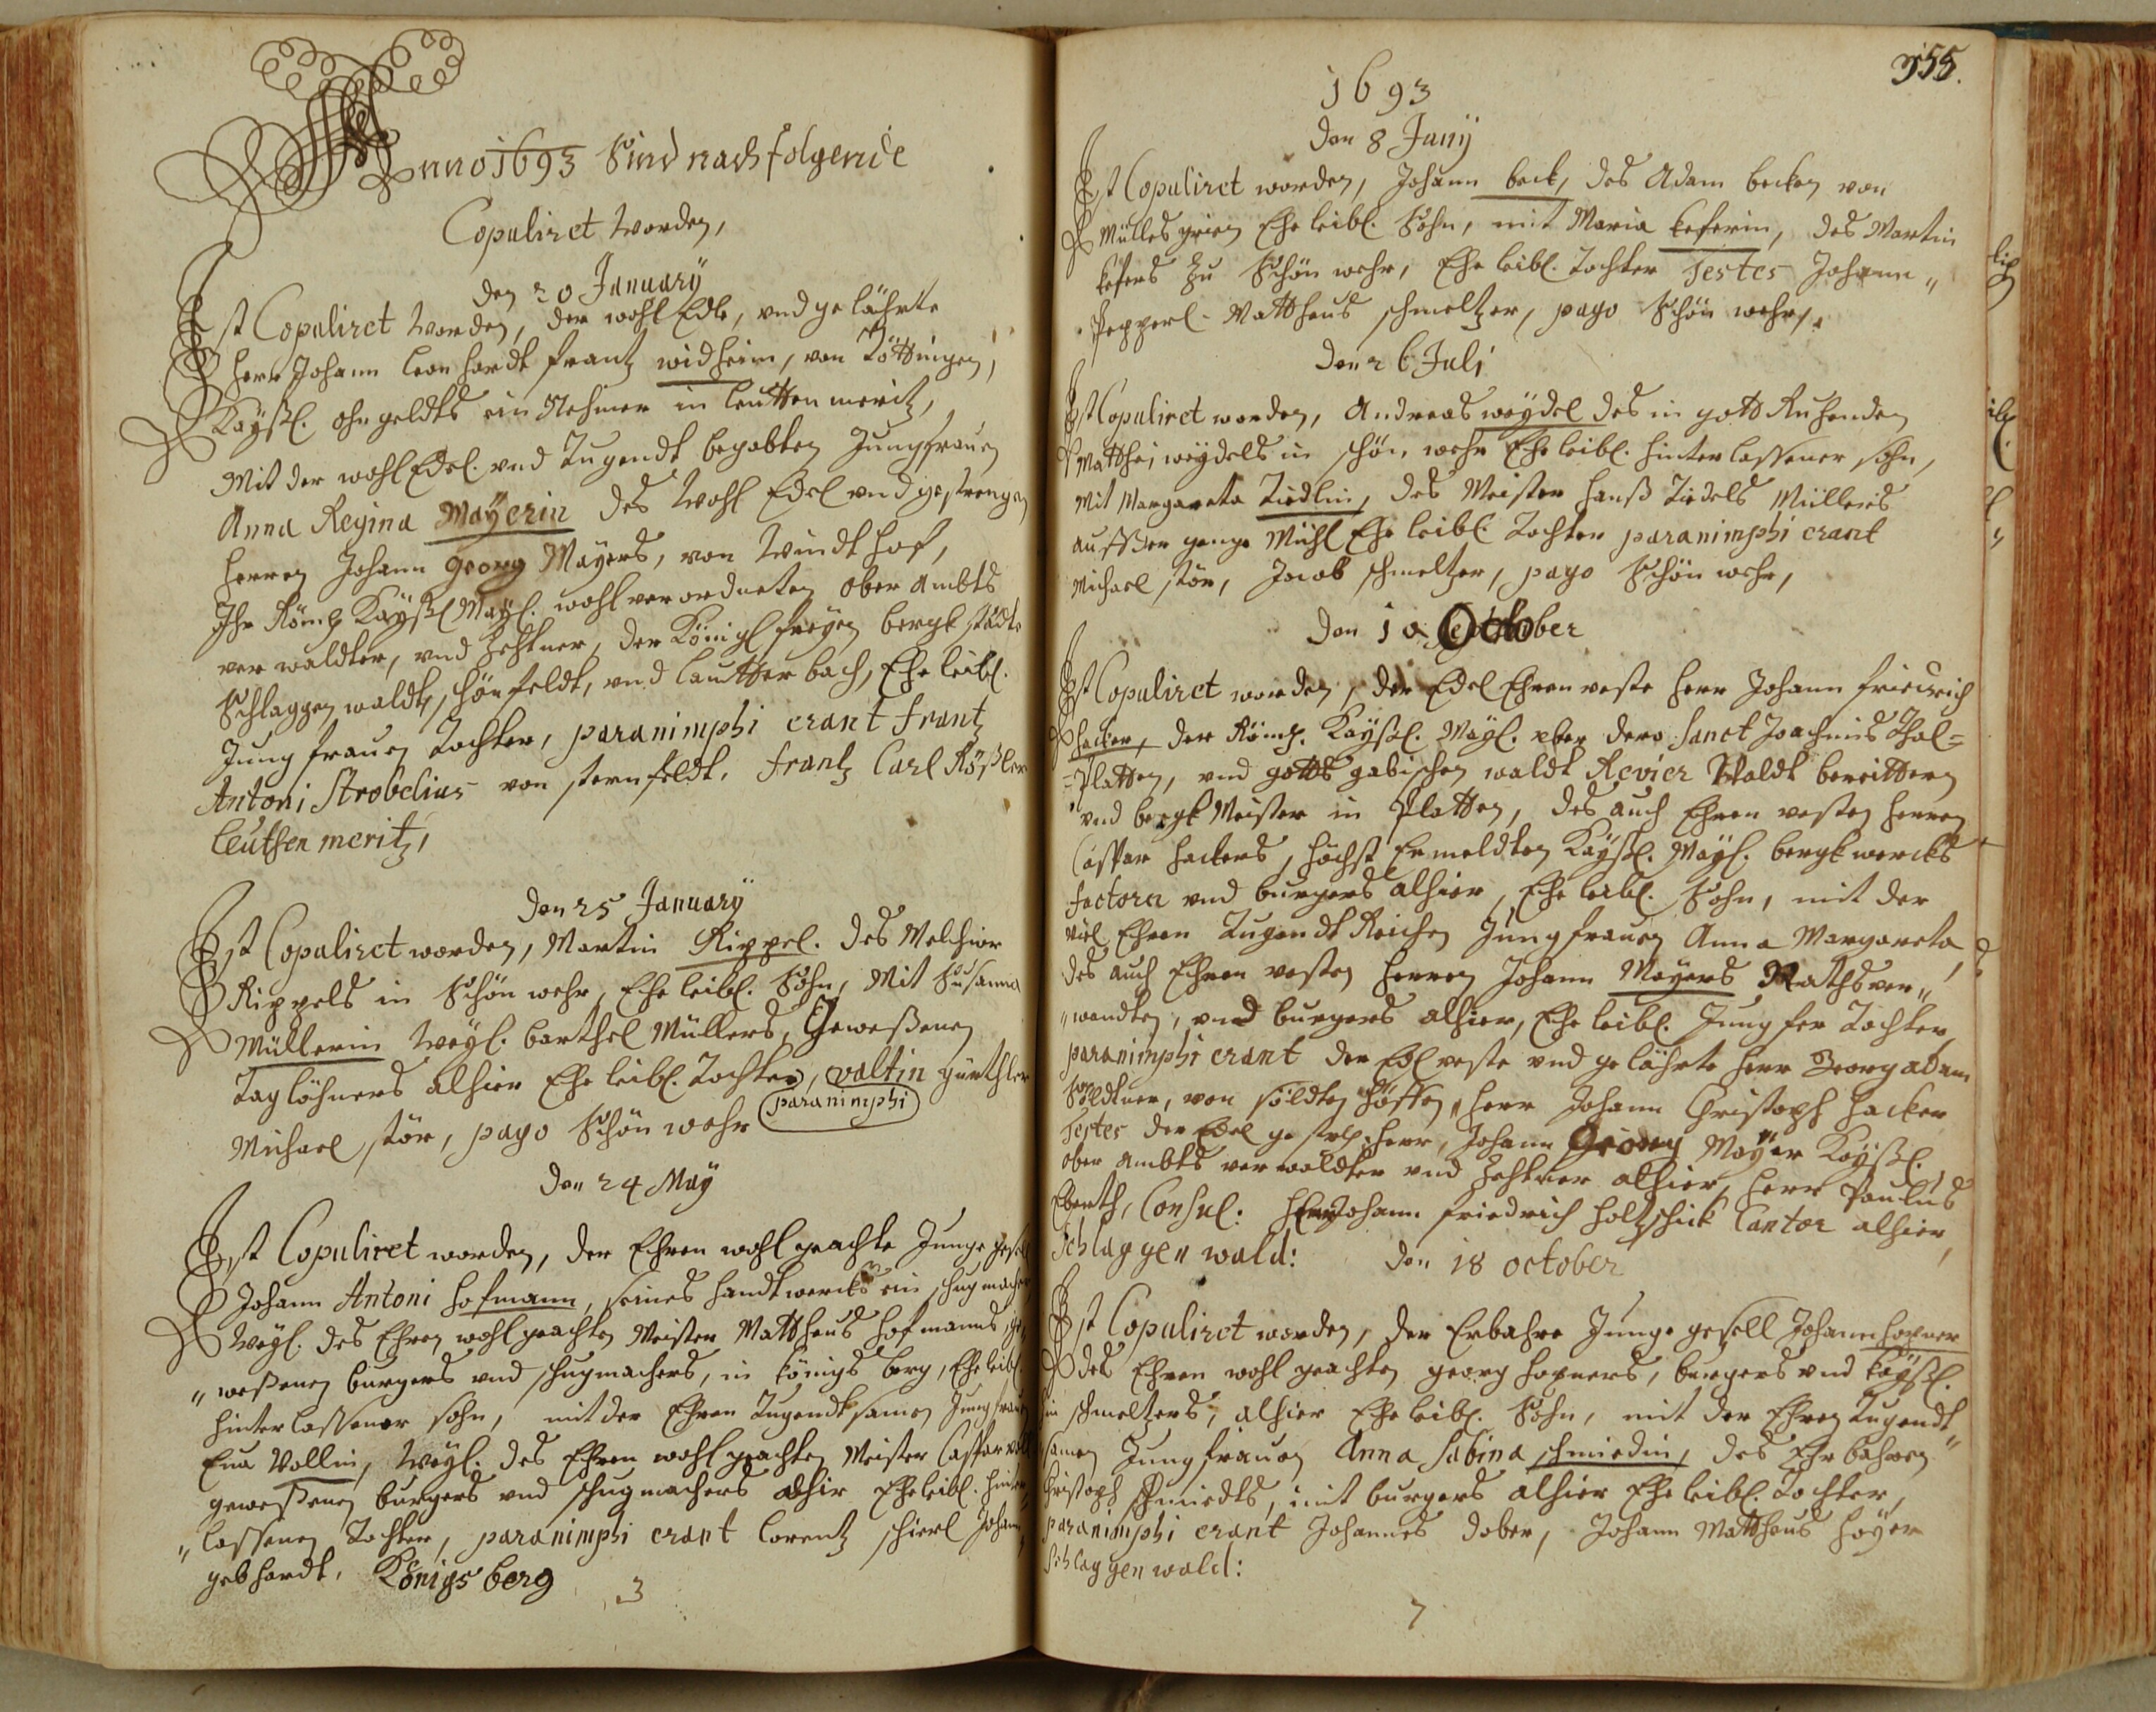 Anno 1693 Sind nachfolgende
Copuliret worden,
den 20 January
Ist Copuliret worden, der wohl Edle, vnd gelährte
Herr Johann Leonhardt Frantz widheim, von Töttingen,
Kayßl. ohngeldts ein Nehmer in Leuttenmeritz,
Mit der wohl Edel. vnd Tugendt begabten Jungfrauen
Anna Regina Mayerin des Wohl Edel vnd gestrengen
Herren Johann Georg Mayers, von Windthof,
Ihr Römß Kayßl Mayl. wohlverordneten ober Ambts
verwaldter, vnd Zehtner, der Königl freyen bergk städte
Schlaggenwaldt, schönfeldt, vnd Lautterbach, Eheleibl.
Jungfrauen Tochter, paranimphi erant Frantz
Antoni Strobelius von sternfeldt, Frantz Carl Rößler
Leuthenmeritz,
Den 25 January
Ist Copuliret worden, Martin Rippel. des Melchior
Rippels in Schönwehr, Eheleibl. Sohn, Mit Susanna
Müllerin Weyl. barthel Müllers, Geweßenen
Taglöhners alhier Eheleibl. Tochter, valtin gürthler
Michael stör, pago Schönwehr paranimphi
Den 24 May
Ist Copuliret worden, der Ehren wohlgeachte Junge gesell
Johann Antoni Hofmann, seines handtwercks ein schugmacher
Weyl. des Ehren wohlgeachten Meister Mattheus Hofmanns, ge„
„weßenen burgers vnd schugmachers, in Königsberg, Eheleibl.
hinterlassener sohn, mit der Ehren Tugendtsamen Jungfrauen
Eua Vollin, Weyl. des Ehren wohlgeachten Meister Casspar voll
geweßenen burgers vnd schugmachers alhir Eheleibl. hinter„
„lassenen Tochter, paranimphi erant Lorentz schierl Johann
gebhardt, Königsberg
3
355.
1693
Den 8 Juny
Ist Copuliret worden, Johann beck, des Adam becken von
Müllesgrien Eheleibl. Sohn, mit Maria keferin, des Martin
kefers zu Schönwehr, Eheleibl. Tochter Testes Johann„
Pepperl. Mattheus schmeltzer, pago Schönwehr,
Den 26 Juli
Ist Copuliret worden, Andreas weydel des in gott Ruhenden
Matthei weydels in schönwehr Eheleibl. hinterlassener sohn,
Mit Margareta Tiedlin, des Meister Hanß Tiedels Müllers
auf der gange Mühl Eheleibl. Tochter paranimphi erant
Michael stör, Jacob schmeltzer, pago Schönwehr,
Den 10 October
Ist Copuliret worden, der Edel Ehrenveste Herr Johann Friedrich
Hacker, der Römß. Kayßl. Mayl. yber dero Sanct Joachims Thal=
=Platten, vnd gottsgabischen waldt Revier Waldt bereitter
vnd bergk Meister in Platten, des auch Ehren vesten Herren
Caspar Hackers, höchst Ermeldten Kayßl. Mayl. bergkwercks
factorn vnd burgers alhier, Eheleibl. Sohn, mit der
viel Ehren Tugendt Reichen Jungfrauen Anna Margareta,
des auch Ehren vesten Herren Johann Mayers Rathsver„
„wandten, vnd burgers alhier, Eheleibl. Jungfer Tochter,
paranimphi erant der Edl veste vnd gelährte Herr Georg Adam
Söldtner, von söldten Höffen, Herr Johann Christoph Hacker
Testes der Edel gestr. Herr, Johann Georg Mayer Kayßl.
ober Ambts verwaldter vnd Zehtner alhier, Herr Paulus
Eberth, Consul: Herr Johann Friedrich Holtzschick Cantor alhier,
Schlaggenwald:
Den 18 october
Ist Copuliret worden, der Erbahre Junge gesell Johann hopner
des Ehren wohlgeachten georg hopners, burgers vnd Kayßl.
Zin schmeltzers, alhier Eheleibl. Sohn, mit der Ehren Tugendt„
samen Jungfrauen Anna Sabina schmiedin, des Ehrbahren
Christoph schmiedts, mit burgers alhier Eheleibl. Tochter,
paranimphi erant Johannes Dober, Johann Mattheus Hoyer
Schlaggenwald:
7